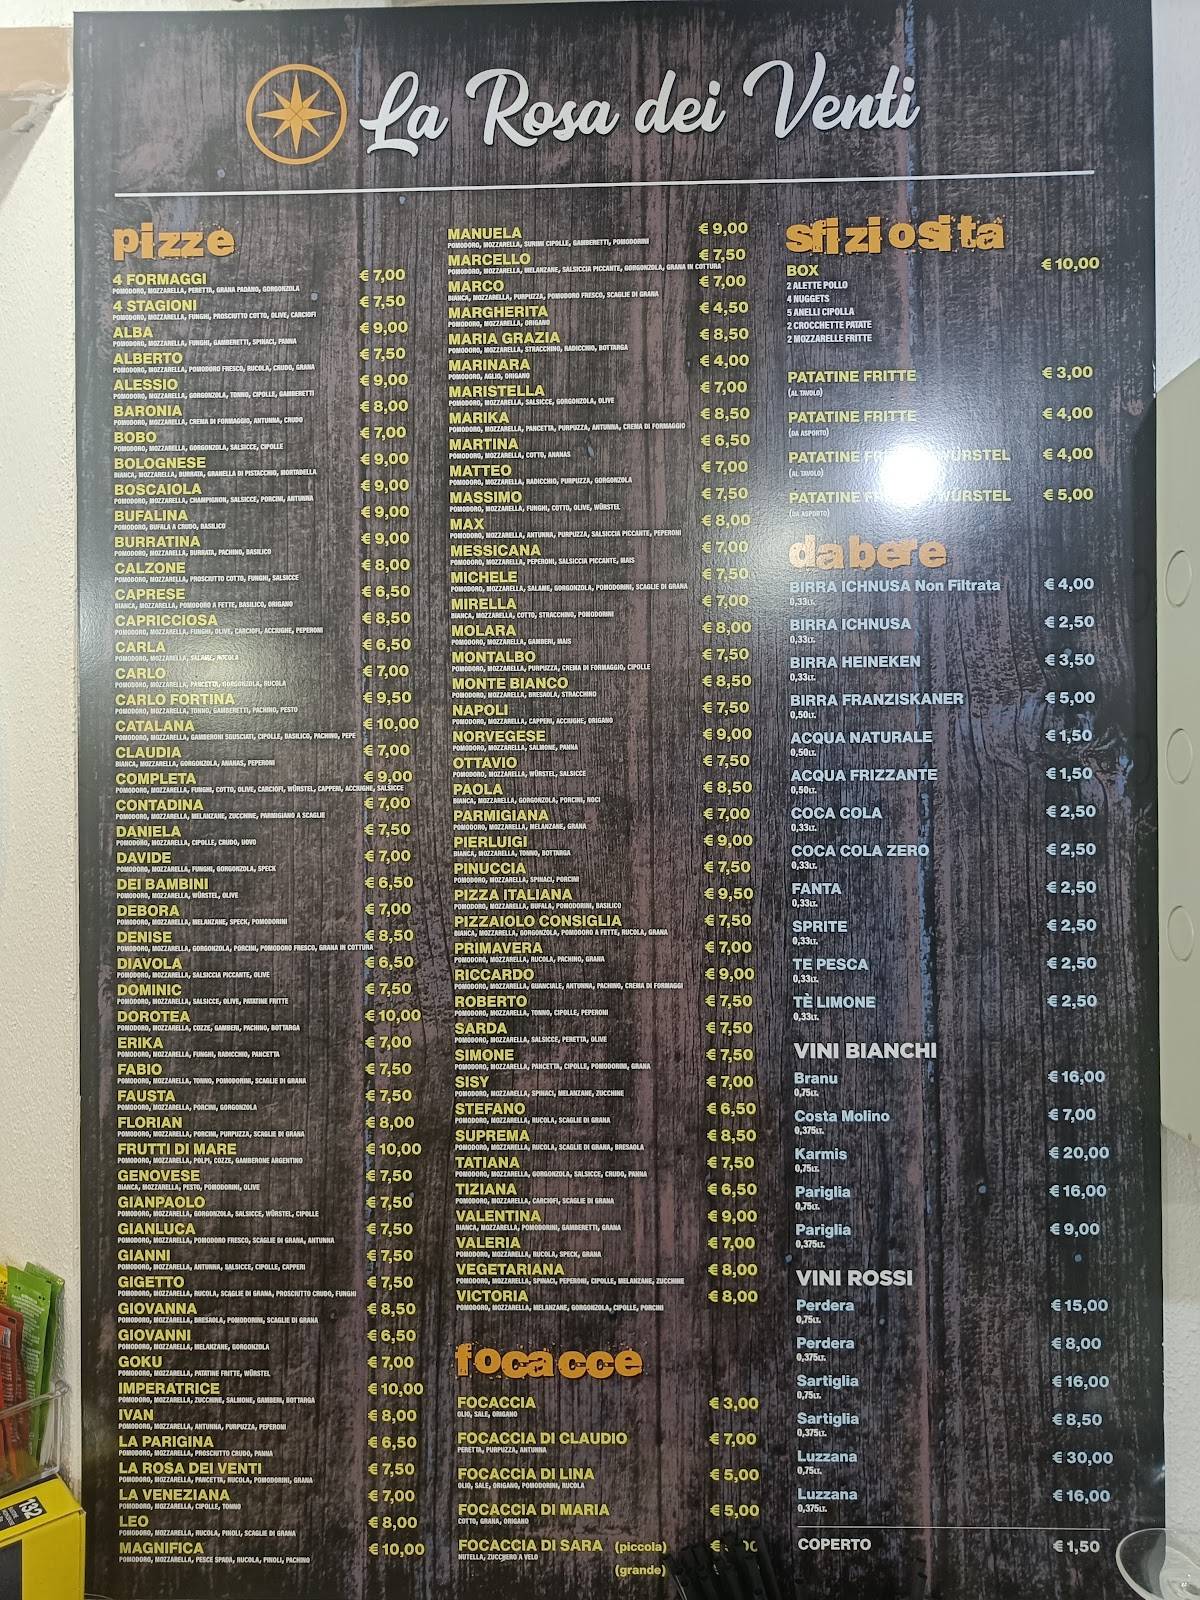 La Rosa dei Venti
pizze
4 FORMAGGI € 7,00
POMODORO, MOZZARELLA, PERETTA, GRANA PADANO, GORGONZOLA
4 STAGIONI € 7,50
POMODORO, MOZZARELLA, FUNGHI, PROSCIUTTO COTTO, OLIVE, CARCIOFI
ALBA € 9,00
POMODORO, MOZZARELLA, FUNGHI, GAMBERETTI, SPINACI, PANNA
ALBERTO € 7,50
POMODORO, MOZZARELLA, POMODORO FRESCO, RUCOLA, CRUDO, GRANA
ALESSIO € 9,00
POMODORO, MOZZARELLA, GORGONZOLA, TONNO, CIPOLLE, GAMBERETTI
BARONIA € 8,00
POMODORO, MOZZARELLA, CREMA DI FORMAGGIO, ANTUNNA, CRUDO
BOBO € 7,00
POMODORO, MOZZARELLA, GORGONZOLA, SALSICCE, CIPOLLE
BOLOGNESE € 9,00
BIANCA, MOZZARELLA, BURRATA, GRANELLA DI PISTACCHIO, MORTADELLA
BOSCAIOLA € 9,00
POMODORO, MOZZARELLA, CHAMPIGNON, SALSICCE, PORCINI, ANTUNNA
BUFALINA € 9,00
POMODORO, BUFALA A CRUDO, BASILICO
BURRATINA € 9,00
POMODORO, MOZZARELLA, BURRATA, PACHINO, BASILICO
CALZONE € 8,00
POMODORO, MOZZARELLA, PROSCIUTTO COTTO, FUNGHI, SALSICCE
CAPRESE € 6,50
BIANCA, MOZZARELLA, POMODORO A FETTE, BASILICO, ORIGANO
CAPRICCIOSA € 8,50
POMODORO, MOZZARELLA, FUNGHI, OLIVE, CARCIOFI, ACCIUGHE, PEPERONI
CARLA € 6,50
POMODORO, MOZZARELLA, SALAME, RUCOLA
CARLO € 7,00
POMODORO, MOZZARELLA, PANCETTA, GORGONZOLA, RUCOLA
CARLO FORTINA € 9,50
POMODORO, MOZZARELLA, TONNO, GAMBERETTI, PACHINO, PESTO
CATALANA € 10,00
POMODORO, MOZZARELLA, GAMBERONI SGUSCIATI, CIPOLLE, BASILICO, PACHINO, PEPE
CLAUDIA € 7,00
BIANCA, MOZZARELLA, GORGONZOLA, ANANAS, PEPERONI
COMPLETA € 9,00
POMODORO, MOZZARELLA, FUNGHI, COTTO, OLIVE, CARCIOFI, WÜRSTEL, CAPPERI, ACCIUGHE, SALSICCE
CONTADINA € 7,00
POMODORO, MOZZARELLA, MELANZANE, ZUCCHINE, PARMIGIANO A SCAGLIE
DANIELA € 7,50
POMODORO, MOZZARELLA, CIPOLLE, CRUDO, UOVO
DAVIDE € 7,00
POMODORO, MOZZARELLA, FUNGHI, GORGONZOLA, SPECK
DEI BAMBINI € 6,50
POMODORO, MOZZARELLA, WÜRSTEL, OLIVE
DEBORA € 7,00
POMODORO, MOZZARELLA, MELANZANE, SPECK, POMODORINI
DENISE € 8,50
POMODORO, MOZZARELLA, GORGONZOLA, PORCINI, POMODORO FRESCO, GRANA IN COTTURA
DIAVOLA € 6,50
POMODORO, MOZZARELLA, SALSICCIA PICCANTE, OLIVE
DOMINIC € 7,50
POMODORO, MOZZARELLA, SALSICCE, OLIVE, PATATINE FRITTE
DOROTEA € 10,00
POMODORO, MOZZARELLA, COZZE, GAMBERI, PACHINO, BOTTARGA
ERIKA € 7,00
POMODORO, MOZZARELLA, FUNGHI, RADICCHIO, PANCETTA
FABIO € 7,50
POMODORO, MOZZARELLA, TONNO, POMODORINI, SCAGLIE DI GRANA
FAUSTA € 7,50
POMODORO, MOZZARELLA, PORCINI, GORGONZOLA
FLORIAN € 8,00
POMODORO, MOZZARELLA, PORCINI, PURPUZZA, SCAGLIE DI GRANA
FRUTTI DI MARE € 10,00
POMODORO, MOZZARELLA, POLPI, COZZE, GAMBERONE ARGENTINO
GENOVESE € 7,50
BIANCA, MOZZARELLA, PESTO, POMODORINI, OLIVE
GIANPAOLO € 7,50
POMODORO, MOZZARELLA, GORGONZOLA, SALSICCE, WÜRSTEL, CIPOLLE
GIANLUCA € 7,50
POMODORO, MOZZARELLA, POMODORO FRESCO, SCAGLIE DI GRANA, ANTUNNA
GIANNI € 7,50
POMODORO, MOZZARELLA, ANTUNNA, SALSICCE, CIPOLLE, CAPPERI
GIGETTO € 7,50
POMODORO, MOZZARELLA, RUCOLA, SCAGLIE DI GRANA, PROSCIUTTO CRUDO, FUNGHI
GIOVANNA € 8,50
POMODORO, MOZZARELLA, BRESAOLA, POMODORINI, SCAGLIE DI GRANA
GIOVANNI € 6,50
POMODORO, MOZZARELLA, MELANZANE, GORGONZOLA
GOKU € 7,00
POMODORO, MOZZARELLA, PATATINE FRITTE, WÜRSTEL
IMPERATRICE € 10,00
POMODORO, MOZZARELLA, ZUCCHINE, SALMONE, GAMBERI, BOTTARGA
IVAN € 8,00
POMODORO, MOZZARELLA, ANTUNNA, PURPUZZA, PEPERONI
LA PARIGINA € 6,50
POMODORO, MOZZARELLA, PROSCIUTTO CRUDO, PANNA
LA ROSA DEI VENTI € 7,50
POMODORO, MOZZARELLA, PANCETTA, RUCOLA, POMODORINI, GRANA
LA VENEZIANA € 7,00
POMODORO, MOZZARELLA, CIPOLLE, TONNO
LEO € 8,00
POMODORO, MOZZARELLA, RUCOLA, PINOLI, SCAGLIE DI GRANA
MAGNIFICA € 10,00
POMODORO, MOZZARELLA, PESCE SPADA, RUCOLA, PINOLI, PACHINO
MANUELA € 9,00
POMODORO, MOZZARELLA, SURIMI CIPOLLE, GAMBERETTI, POMODORINI
MARCELLO € 7,50
POMODORO, MOZZARELLA, MELANZANE, SALSICCIA PICCANTE, GORGONZOLA, GRANA IN COTTURA
MARCO € 7,00
BIANCA, MOZZARELLA, PURPUZZA, POMODORO FRESCO, SCAGLIE DI GRANA
MARGHERITA € 4,50
POMODORO, MOZZARELLA, ORIGANO
MARIA GRAZIA € 8,50
POMODORO, MOZZARELLA, STRACCHINO, RADICCHIO, BOTTARGA
MARINARA € 4,00
POMODORO, AGLIO, ORIGANO
MARISTELLA € 7,00
POMODORO, MOZZARELLA, SALSICCE, GORGONZOLA, OLIVE
MARIKA € 8,50
POMODORO, MOZZARELLA, PANCETTA, PURPUZZA, ANTUNNA, CREMA DI FORMAGGIO
MARTINA € 6,50
POMODORO, MOZZARELLA, COTTO, ANANAS
MATTEO € 7,00
POMODORO, MOZZARELLA, RADICCHIO, PURPUZZA, GORGONZOLA
MASSIMO € 7,50
POMODORO, MOZZARELLA, FUNGHI, COTTO, OLIVE, WÜRSTEL
MAX € 8,00
POMODORO, MOZZARELLA, ANTUNNA, PURPUZZA, SALSICCIA PICCANTE, PEPERONI
MESSICANA € 7,00
POMODORO, MOZZARELLA, PEPERONI, SALSICCIA PICCANTE, MAIS
MICHELE € 7,50
POMODORO, MOZZARELLA, SALAME, GORGONZOLA, POMODORINI, SCAGLIE DI GRANA
MIRELLA € 7,00
BIANCA, MOZZARELLA, COTTO, STRACCHINO, POMODORINI
MOLARA € 8,00
POMODORO, MOZZARELLA, GAMBERI, MAIS
MONTALBO € 7,50
POMODORO, MOZZARELLA, PURPUZZA, CREMA DI FORMAGGIO, CIPOLLE
MONTE BIANCO € 8,50
POMODORO, MOZZARELLA, BRESAOLA, STRACCHINO
NAPOLI € 7,50
POMODORO, MOZZARELLA, CAPPERI, ACCIUGHE, ORIGANO
NORVEGESE € 9,00
POMODORO, MOZZARELLA, SALMONE, PANNA
OTTAVIO € 7,50
POMODORO, MOZZARELLA, WÜRSTEL, SALSICCE
PAOLA € 8,50
BIANCA, MOZZARELLA, GORGONZOLA, PORCINI, NOCI
PARMIGIANA € 7,00
POMODORO, MOZZARELLA, MELANZANE, GRANA
PIERLUIGI € 9,00
BIANCA, MOZZARELLA, TONNO, BOTTARGA
PINUCCIA € 7,50
POMODORO, MOZZARELLA, SPINACI, PORCINI
PIZZA ITALIANA € 9,50
POMODORO, MOZZARELLA, BUFALA, POMODORINI, BASILICO
PIZZAIOLO CONSIGLIA € 7,50
BIANCA, MOZZARELLA, GORGONZOLA, POMODORO A FETTE, RUCOLA, GRANA
PRIMAVERA € 7,00
POMODORO, MOZZARELLA, RUCOLA, PACHINO, GRANA
RICCARDO € 9,00
POMODORO, MOZZARELLA, GUANCIALE, ANTUNNA, PACHINO, CREMA DI FORMAGGI
ROBERTO € 7,50
POMODORO, MOZZARELLA, TONNO, CIPOLLE, PEPERONI
SARDA € 7,50
POMODORO, MOZZARELLA, SALSICCE, PERETTA, OLIVE
SIMONE € 7,50
POMODORO, MOZZARELLA, PANCETTA, CIPOLLE, POMODORINI, GRANA
SISY € 7,00
POMODORO, MOZZARELLA, SPINACI, MELANZANE, ZUCCHINE
STEFANO € 6,50
POMODORO, MOZZARELLA, RUCOLA, SCAGLIE DI GRANA
SUPREMA € 8,50
POMODORO, MOZZARELLA, RUCOLA, SCAGLIE DI GRANA, BRESAOLA
TATIANA € 7,50
POMODORO, MOZZARELLA, GORGONZOLA, SALSICCE, CRUDO, PANNA
TIZIANA € 6,50
POMODORO, MOZZARELLA, CARCIOFI, SCAGLIE DI GRANA
VALENTINA € 9,00
BIANCA, MOZZARELLA, POMODORINI, GAMBERETTI, GRANA
VALERIA € 7,00
POMODORO, MOZZARELLA, RUCOLA, SPECK, GRANA
VEGETARIANA € 8,00
POMODORO, MOZZARELLA, SPINACI, PEPERONI, CIPOLLE, MELANZANE, ZUCCHINE
VICTORIA € 8,00
POMODORO, MOZZARELLA, MELANZANE, GORGONZOLA, CIPOLLE, PORCINI
focacce
FOCACCIA € 3,00
OLIO, SALE, ORIGANO
FOCACCIA DI CLAUDIO € 7,00
PERETTA, PURPUZZA, ANTUNNA
FOCACCIA DI LINA € 5,00
OLIO, SALE, ORIGANO, POMODORINI, RUCOLA
FOCACCIA DI MARIA € 5,00
COTTO, GRANA, ORIGANO
FOCACCIA DI SARA (piccola) €
NUTELLA, ZUCCHERO A VELO
(grande)
sfiziosita
BOX € 10,00
2 ALETTE POLLO
4 NUGGETS
5 ANELLI CIPOLLA
2 CROCCHETTE PATATE
2 MOZZARELLE FRITTE
PATATINE FRITTE € 3,00
(AL TAVOLO)
PATATINE FRITTE € 4,00
(DA ASPORTO)
PATATINE WÜRSTEL € 4,00
(AL TAVOLO)
PATATINE WÜRSTEL € 5,00
(DA ASPORTO)
da bere
BIRRA ICHNUSA Non Filtrata € 4,00
0,33LT.
BIRRA ICHNUSA € 2,50
0,33LT.
BIRRA HEINEKEN € 3,50
0,33LT.
BIRRA FRANZISKANER € 5,00
0,50LT.
ACQUA NATURALE € 1,50
0,50LT.
ACQUA FRIZZANTE € 1,50
0,50LT.
COCA COLA € 2,50
0,33LT.
COCA COLA ZERO € 2,50
0,33LT.
FANTA € 2,50
0,33LT.
SPRITE € 2,50
0,33LT.
TE PESCA € 2,50
0,33LT.
TÈ LIMONE € 2,50
0,33LT.
VINI BIANCHI
Branu € 16,00
0,75LT.
Costa Molino € 7,00
0,375LT.
Karmis € 20,00
0,75LT.
Pariglia € 16,00
0,75LT.
Pariglia € 9,00
0,375LT.
VINI ROSSI
Perdera € 15,00
0,75LT.
Perdera € 8,00
0,375LT.
Sartiglia € 16,00
0,75LT.
Sartiglia € 8,50
0,375LT.
Luzzana € 30,00
0,75LT.
Luzzana € 16,00
0,375LT.
COPERTO € 1,50
132